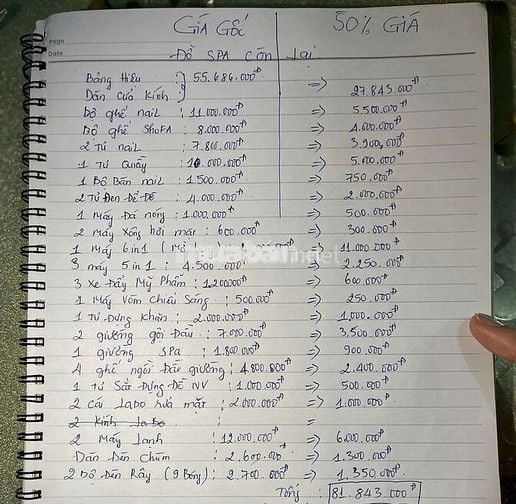 GIÁ GỐC 50% GIÁ
Page
Date
Đồ SPA CÒN Lại
Bảng Hiệu } 55.686.000đ
Dán Cửa Kính => 27.843.000đ
Bộ ghế nail : 11.000.000đ => 5.500.000đ
Bộ ghế ShoFA : 8.000.000đ => 4.000.000đ
2 Tủ nail : 7.800.000đ => 3.900.000đ
1 Tủ Quầy : 10.000.000đ => 5.000.000đ
1 Bộ Bàn nail : 1.500.000đ => 750.000đ
2 Tủ Đen Để Đồ : 4.000.000đ => 2.000.000đ
1 Máy Đá nóng : 1.000.000đ => 500.000đ
2 Máy Xông hơi mặt : 600.000đ => 300.000đ
1 Máy 6 in 1 => 11.000.000đ
3 máy 5 in 1 : 4.500.000đ => 2.250.000đ
3 Xe Đẩy Mỹ Phẩm : 1.200.000đ => 600.000đ
1 Máy Vòm Chiếu Sáng : 500.000đ => 250.000đ
1 Tủ Đựng Khăn : 2.000.000đ => 1.000.000đ
2 giường gội Đầu : 7.000.000đ => 3.500.000đ
1 giường SPA : 1.800.000đ => 900.000đ
4 ghế ngồi Đầu giường : 4.800.000đ => 2.400.000đ
1 Tủ Sắt Đựng Đồ NV : 1.000.000đ => 500.000đ
2 Cái LaBo rửa mặt : 2.000.000đ => 1.000.000đ
2 Kính LaBo : =
2 Máy Lạnh 12.000.000đ => 6.000.000đ
Dàn Đèn Chùm : 2.600.000đ => 1.300.000đ
2 Bộ Đèn Rây (9 Bóng) : 2.700.000đ => 1.350.000đ
Tổng : 81.843.000đ